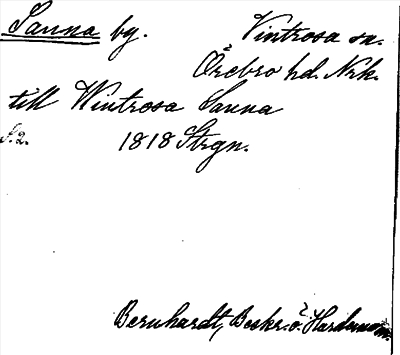 Sanna bg. Vintrosa sn.
Örebro hd. Nrk.
till Wintrosa Sanna
S. 2. 1818 Strgn.
Bernhardt, Beskr. ö. Hardemo sn.